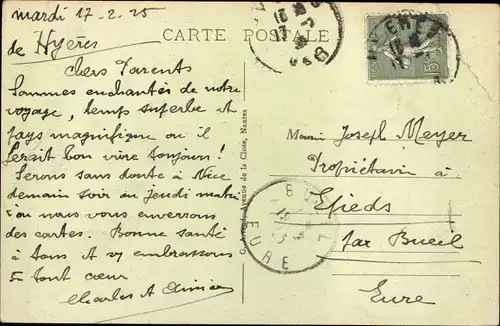 mardi 17-2-25
de Hyères
CARTE POSTALE
Chers Parents
Sommes enchantés de notre
voyage, temps superbe et
pays magnifique ou il
ferait bon vivre toujours !
Serons sans doute à Nice
demain soir ou jeudi matin
ou nous vous enverrons
des cartes. Bonne santé
à tous et vs embrassons
de tout cœur
Charles et
Avenue de la Close, Nantes
HYERES
15
Joseph Meyer
Propriétaire à
Epieds
par Bueil
Eure
BUEIL
EURE